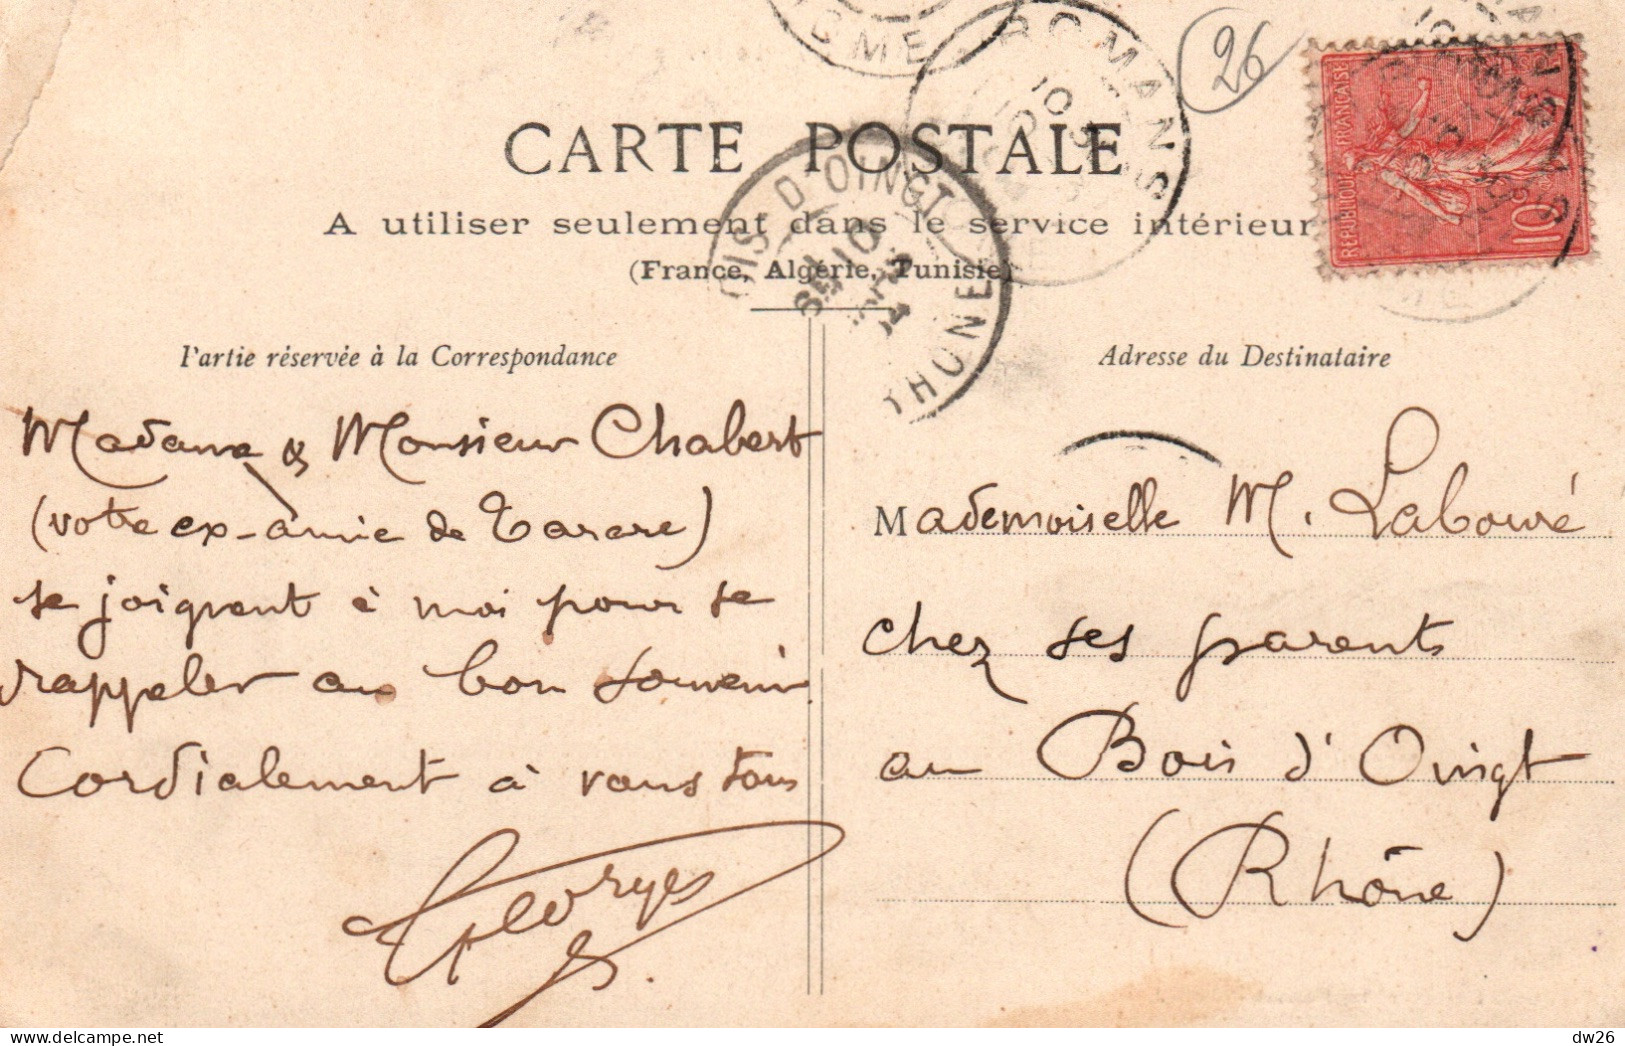 26
ROMANS
CARTE POSTALE
A utiliser seulement dans le service intérieur
(France, Algérie, Tunisie)
REPUBLIQUE FRANÇAISE
10c
BOIS D'OINGT
RHONE
Partie réservée à la Correspondance
Madame & Monsieur Chabert
(votre ex-amie de Tarare)
se joignent à moi pour se
rappeler au bon souvenir
Cordialement à vous tous
Georges
Adresse du Destinataire
Mademoiselle M. Labouré
chez ses parents
au Bois d'Oingt
(Rhône)
dw26